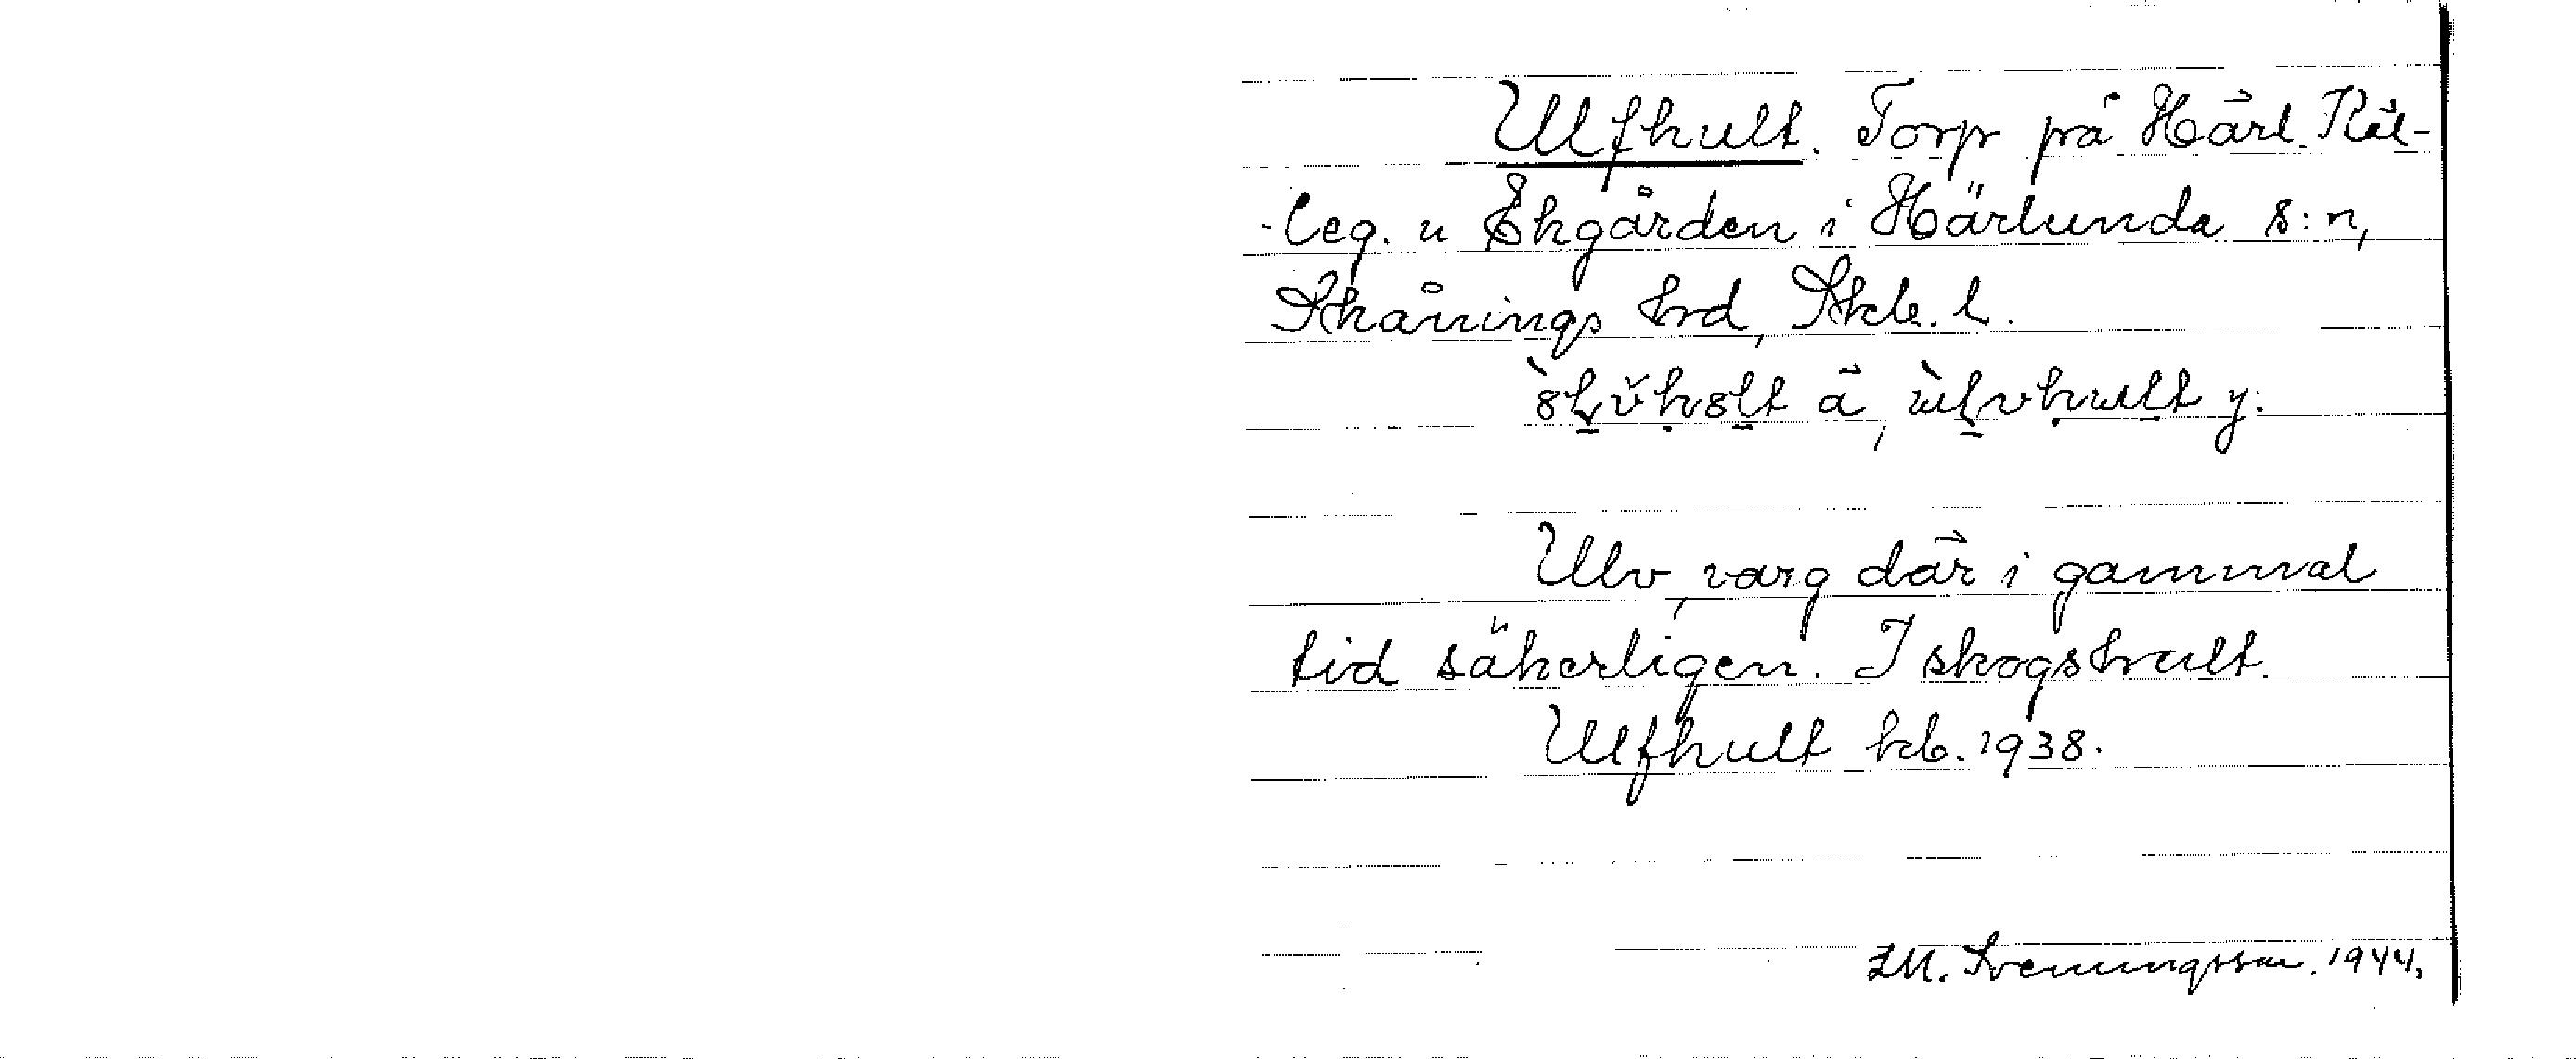 Ulfhult. Torp på Härl. Rål-
leg. u Ekgården i Härlunda s:n,
Skånings hrd, Skb. l.
ùlvhult y.
Ulv, varg där i gammal
tid säkerligen. I skogshult.
Ulfhult kb. 1938.
LM. Svenungsson. 1944.